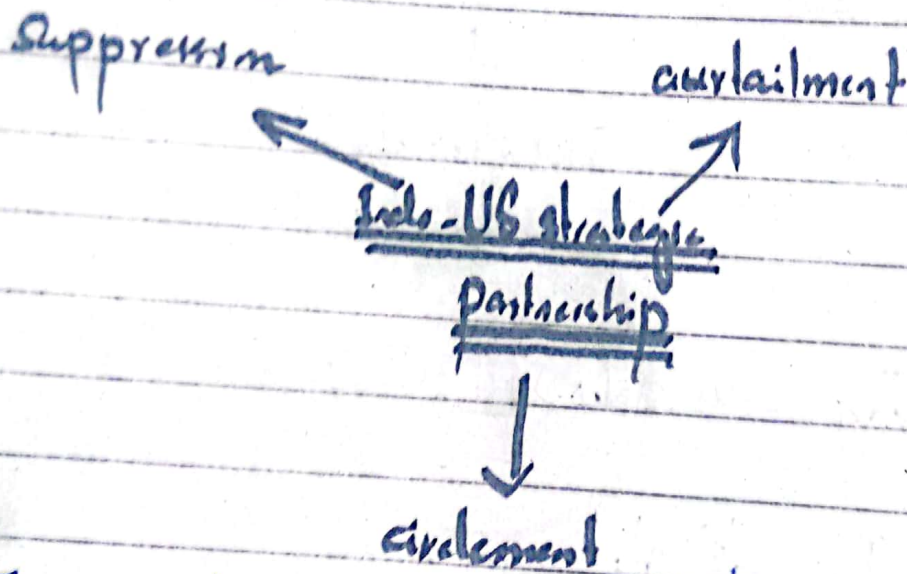 Suppression
curtailment
Indo-US strategic
partnership
circlement